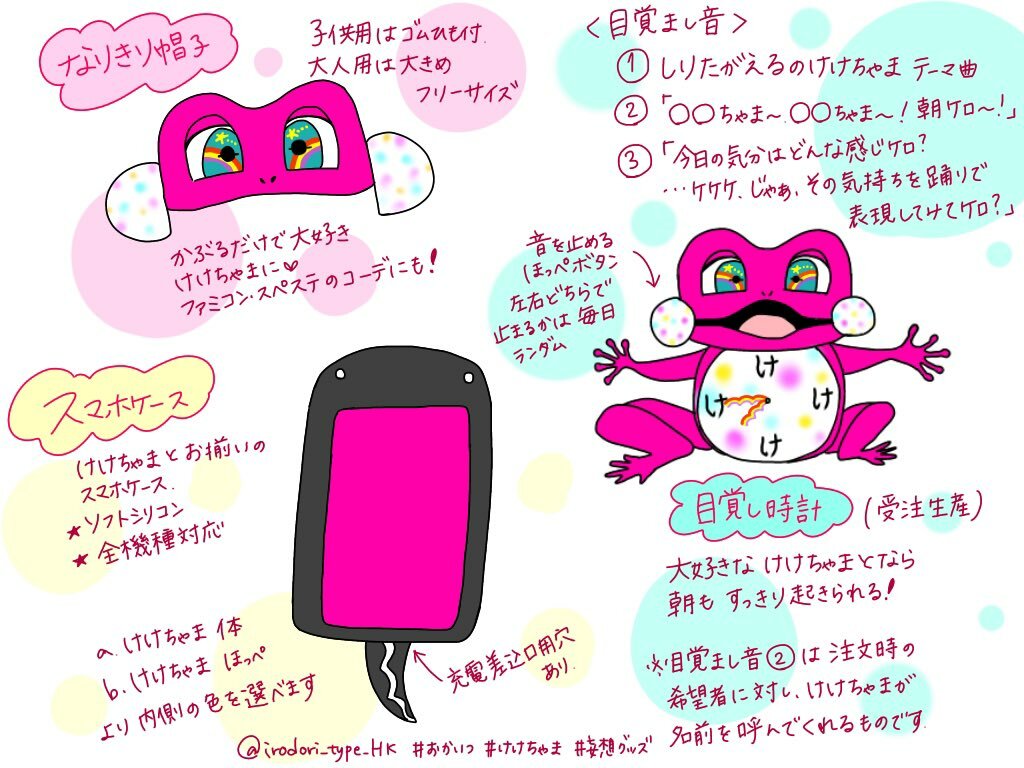 なりきり帽子
子供用はゴムひも付
大人用は大きめ
フリーサイズ
かぶるだけで大好き
けけちゃまに♥
ファミコン・スペステのコーデにも!
スマホケース
けけちゃまとお揃いの
スマホケース.
★ソフトシリコン
★全機種対応
a.けけちゃま 体
b.けけちゃま ほっぺ
より内側の色を選べます
充電差込口用穴
あり.
<目覚まし音>
①しりたがえるのけけちゃま テーマ曲
②「○○ちゃま〜.○○ちゃま〜!朝ケロ〜!」
③「今日の気分はどんな感じケロ?
…ケケケ、じゃあ、その気持ちを踊りで
表現してみてケロ?」
音を止める
ほっぺボタン
左右どちらで
止まるかは 毎日
ランダム
け
け
け
け
目覚し時計
(受注生産)
大好きな けけちゃまとなら
朝も すっきり起きられる!
※目覚まし音②は 注文時の
希望者に対し、けけちゃまが
名前を呼んでくれるものです.
@irodori_type_HK #おかいつ #けけちゃま #妄想グッズ